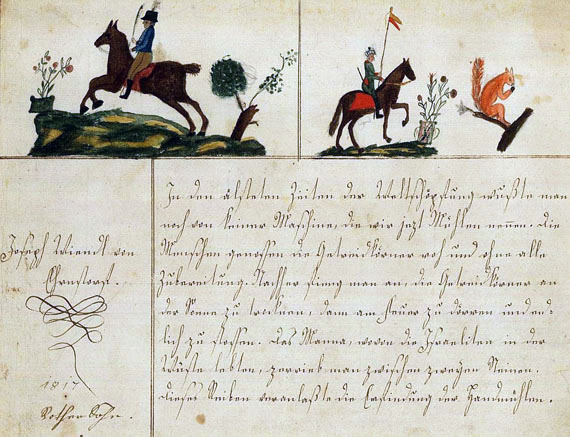 Joseph Wiendl von
Ehrnstorf.
1817
Vother Sohn.
In den älsteten Zeiten der Weltschöpfung wußte man
noch von keiner Maschine, die wir jezt Mühlen nennen. Die
Menschen genossen die Getreidkörner roh und ohne alle
Zubereitung. Nachher fieng man an, die Getreidkörner an
der Sonne zu trocknen, dann am Feuer zu dörren und end-
lich zu stossen. Das Manna, wovon die Israeliten in der
Wüste lebten, zerrieb man zwischen zweyen Steinen.
Dieses Reiben veranlaßte die Erfindung der Handmühlen.